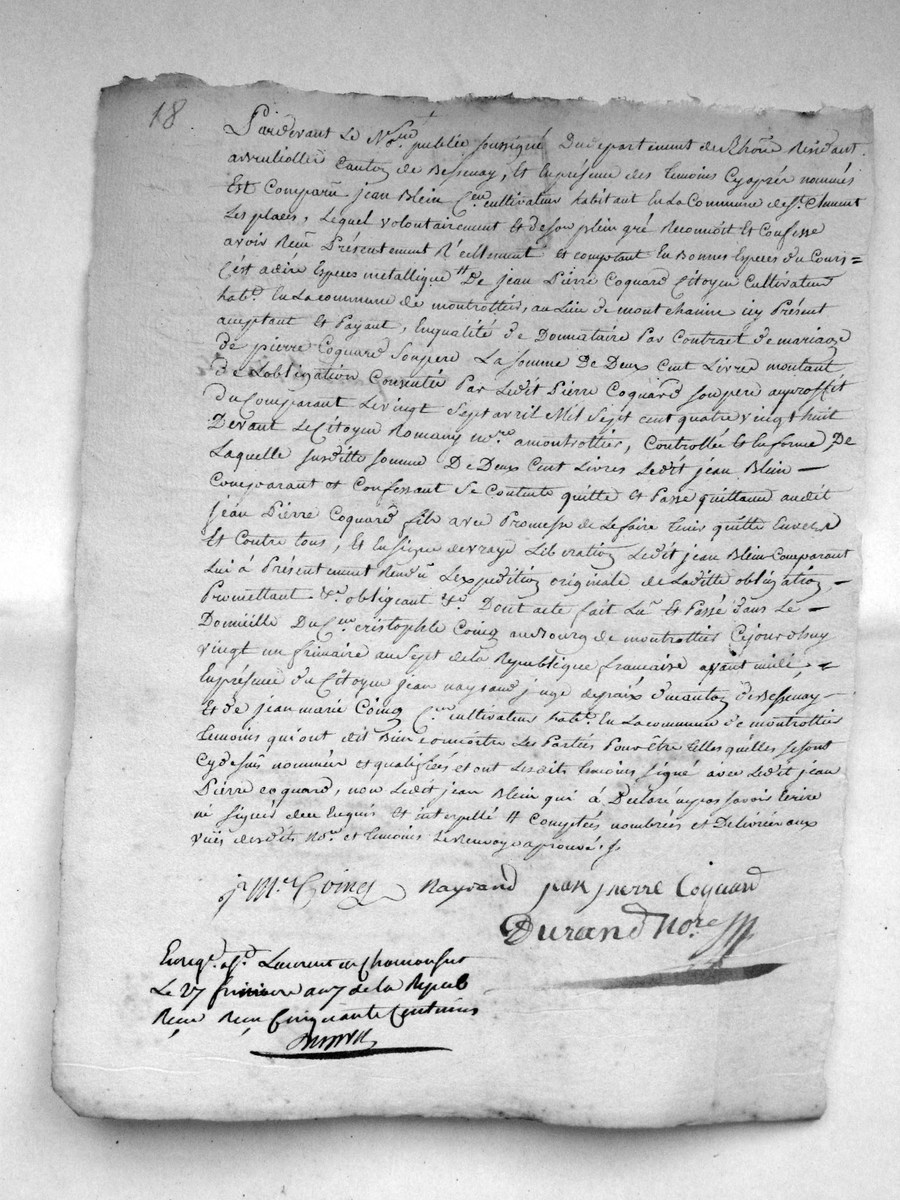 18
Pardevant Le No.re publiq soussigné Du departement du Rhône Residant
Canton de Bessenay, Et En présence des temoins Cy après nommés
Est Comparu jean Blein C.en cultivateur habitant En La Commune de St. Clement
Les places, Lequel volontairement et de son plein gré Reconnoit et Confesse
avoir Reçu Présentement Réellement et comptant En Bonnes Especes du Cours =
C'est adire Especes metallique # De jean Pierre Coquard Citoyen Cultivateur
hab.t En La commune de montrottier, au Lieu de mont chanin icy Présent
aceptant Et Payant, En qualité de Donnataire Par Contract de mariage
de pierre Coquard Son pere La somme De Deux Cent Livres montant
de L'obligation Consentie Par Ledit Pierre Coquard son pere au proffit
du Comparant Le vingt Sept avril Mil Sept cent quatre vingt huit
Devant Le Citoyen Romany no.re a montrottier, Controllée Et En forme, De
Laquelle susditte somme De Deux Cent Livres Ledit jean Blein —
Comparant et Confessant Se Contente quitte et Passe quittance audit
jean Pierre Coquard fils avec Promesse de Le faire tenir quitte Envers
Et Contre tous, Et En Signe de vraye Liberation Ledit jean Blein Comparant
Lui à Présentement Rendu L'expedition originale de Laditte obligation —
Promettant &.a obligeant &.a Dont acte fait Lu Et Passé dans Le —
Domicille Du C.en cristophle Coing au Bourg de montrottier Cejourdhuy
vingt un frimaire an Sept de la Republique francaise avant midi, =
En présence du Citoyen jean naysand juge de paix du canton de Bessenay —
Et de jean marie Coing C.en cultivateur hab.t En La commune de montrottier
temoins qui ont dit Bien connoitre Les Parties Pour être telles qu'elles se sont
Cy dessus nommées et qualifiées et ont Lesdits temoins signé avec Ledit jean
Pierre coquard, non Ledit jean Blein qui à Declaré ne pas savoir Ecrire
ni signer de ce Enquis Et interpellé # Comptées nombrées et Delivrées aux
vües desdits No.re et temoins Le Renvoy aprouvé ./.
j. M.e Coing Naysand jean pierre Coquard
Durand No.re
Enreg.é a St. Laurent de Chamousset
Le 27 frimaire an 7 de la Repub
Reçu Cinquante Centimes